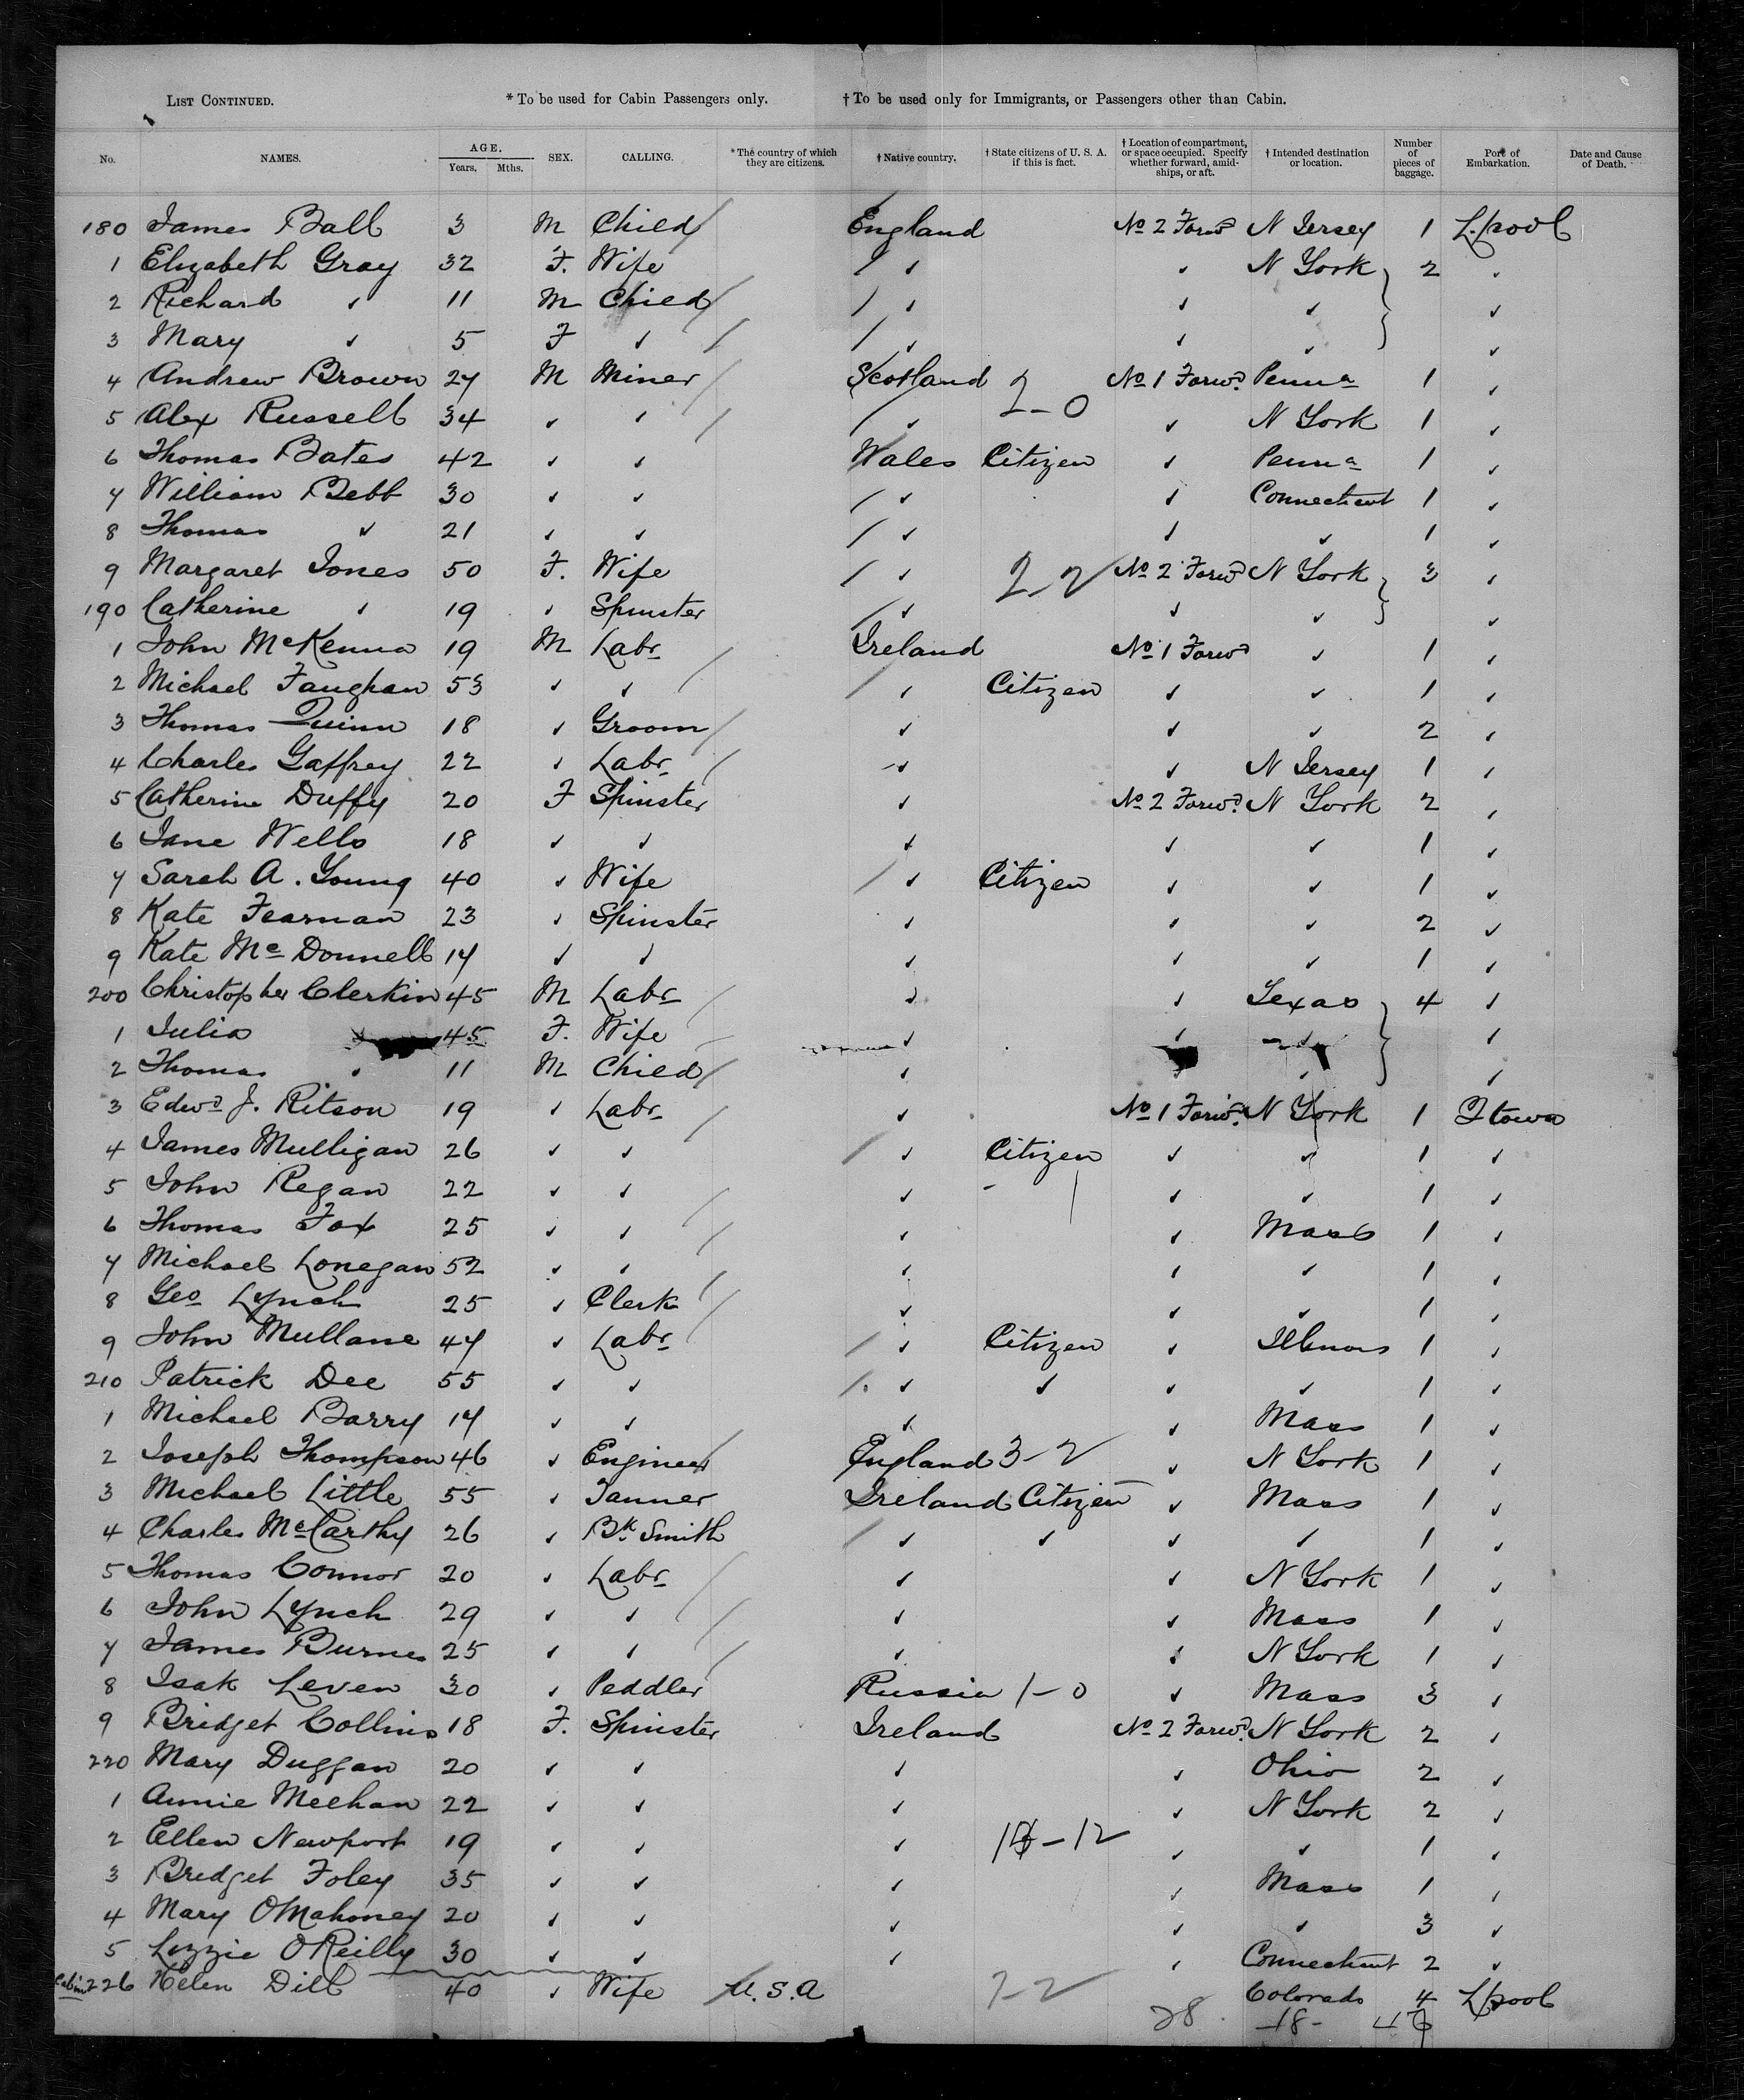 LIST CONTINUED. * To be used for Cabin Passengers only. † To be used only for Immigrants, or Passengers other than Cabin.
No. NAMES. AGE. Years. Mths. SEX. CALLING. * The country of which they are citizens. † Native country. † State citizens of U. S. A. if this is fact. † Location of compartment, or space occupied. Specify whether forward, amidships, or aft. † Intended destination or location. Number of pieces of baggage. Port of Embarkation. Date and Cause of Death.
180 James Ball 3 M Child England No 2 Forwd N Jersey 1 L.pool
1 Elizabeth Gray 32 F. Wife ✓ ✓ N York 2 ✓
2 Richard ✓ 11 M Child ✓ ✓ ✓ ✓
3 Mary ✓ 5 F ✓ ✓ ✓ ✓ ✓
4 Andrew Brown 27 M Miner Scotland 2-0 No 1 Forwd Penna 1 ✓
5 Alex Russell 34 ✓ ✓ ✓ ✓ N York 1 ✓
6 Thomas Bates 42 ✓ ✓ Wales Citizen ✓ Penna 1 ✓
7 William Bebb 30 ✓ ✓ ✓ ✓ Connecticut 1 ✓
8 Thomas ✓ 21 ✓ ✓ ✓ ✓ ✓ 1 ✓
9 Margaret Jones 50 F. Wife ✓ 2-2 No 2 Forwd N York 3 ✓
190 Catherine ✓ 19 ✓ Spinster ✓ ✓ ✓ ✓
1 John McKenna 19 M Labr Ireland No 1 Forwd ✓ 1 ✓
2 Michael Faughan 53 ✓ ✓ ✓ Citizen ✓ ✓ 1 ✓
3 Thomas Quinn 18 ✓ Groom ✓ ✓ ✓ 2 ✓
4 Charles Gaffrey 22 ✓ Labr ✓ ✓ N Jersey 1 ✓
5 Catherine Duffy 20 F Spinster ✓ No 2 Forwd N York 2 ✓
6 Jane Wells 18 ✓ ✓ ✓ ✓ ✓ 1 ✓
7 Sarah A. Young 40 ✓ Wife ✓ Citizen ✓ ✓ 1 ✓
8 Kate Fearnan 23 ✓ Spinster ✓ ✓ ✓ 2 ✓
9 Kate McDonnell 17 ✓ ✓ ✓ ✓ ✓ 1 ✓
200 Christopher Clerkin 45 M Labr ✓ ✓ Texas 4 ✓
1 Julia ✓ 45 F. Wife ✓ ✓ ✓ ✓
2 Thomas ✓ 11 M Child ✓ ✓ ✓
3 Edwd J. Ritson 19 ✓ Labr ✓ No 1 Forwd N York 1 Qtown
4 James Mulligan 26 ✓ ✓ ✓ Citizen ✓ ✓ 1 ✓
5 John Regan 22 ✓ ✓ ✓ ✓ ✓ 1 ✓
6 Thomas Fox 25 ✓ ✓ ✓ ✓ Mass 1 ✓
7 Michael Lonegan 52 ✓ ✓ ✓ ✓ ✓ 1 ✓
8 Geo Lynch 25 ✓ Clerk ✓ ✓ ✓ 1 ✓
9 John Mullane 47 ✓ Labr ✓ Citizen ✓ Illinois 1 ✓
210 Patrick Dee 55 ✓ ✓ ✓ ✓ ✓ ✓ 1 ✓
1 Michael Barry 17 ✓ ✓ ✓ ✓ Mass 1 ✓
2 Joseph Thompson 46 ✓ Engineer England 3-2 ✓ N York 1 ✓
3 Michael Little 55 ✓ Tanner Ireland Citizen ✓ Mass 1 ✓
4 Charles McCarthy 26 ✓ Bk Smith ✓ ✓ ✓ ✓ 1 ✓
5 Thomas Connor 20 ✓ Labr ✓ ✓ N York 1 ✓
6 John Lynch 29 ✓ ✓ ✓ ✓ Mass 1 ✓
7 James Burnes 25 ✓ ✓ ✓ ✓ N York 1 ✓
8 Isak Leven 30 ✓ Peddler Russia 1-0 ✓ Mass 3 ✓
9 Bridget Collins 18 F. Spinster Ireland No 2 Forwd N York 2 ✓
220 Mary Duggan 20 ✓ ✓ ✓ ✓ Ohio 2 ✓
1 Annie Meehan 22 ✓ ✓ ✓ ✓ N York 2 ✓
2 Ellen Newport 19 ✓ ✓ ✓ ✓ ✓ 1 ✓
3 Bridget Foley 35 ✓ ✓ ✓ ✓ Mass 1 ✓
4 Mary OMahoney 20 ✓ ✓ ✓ ✓ ✓ 3 ✓
5 Lizzie OReilly 30 ✓ ✓ ✓ ✓ Connecticut 2 ✓
Cabin 226 Helen Dill 40 ✓ Wife U.S.A 7-2 Colorado 4 L/pool
28 -18-